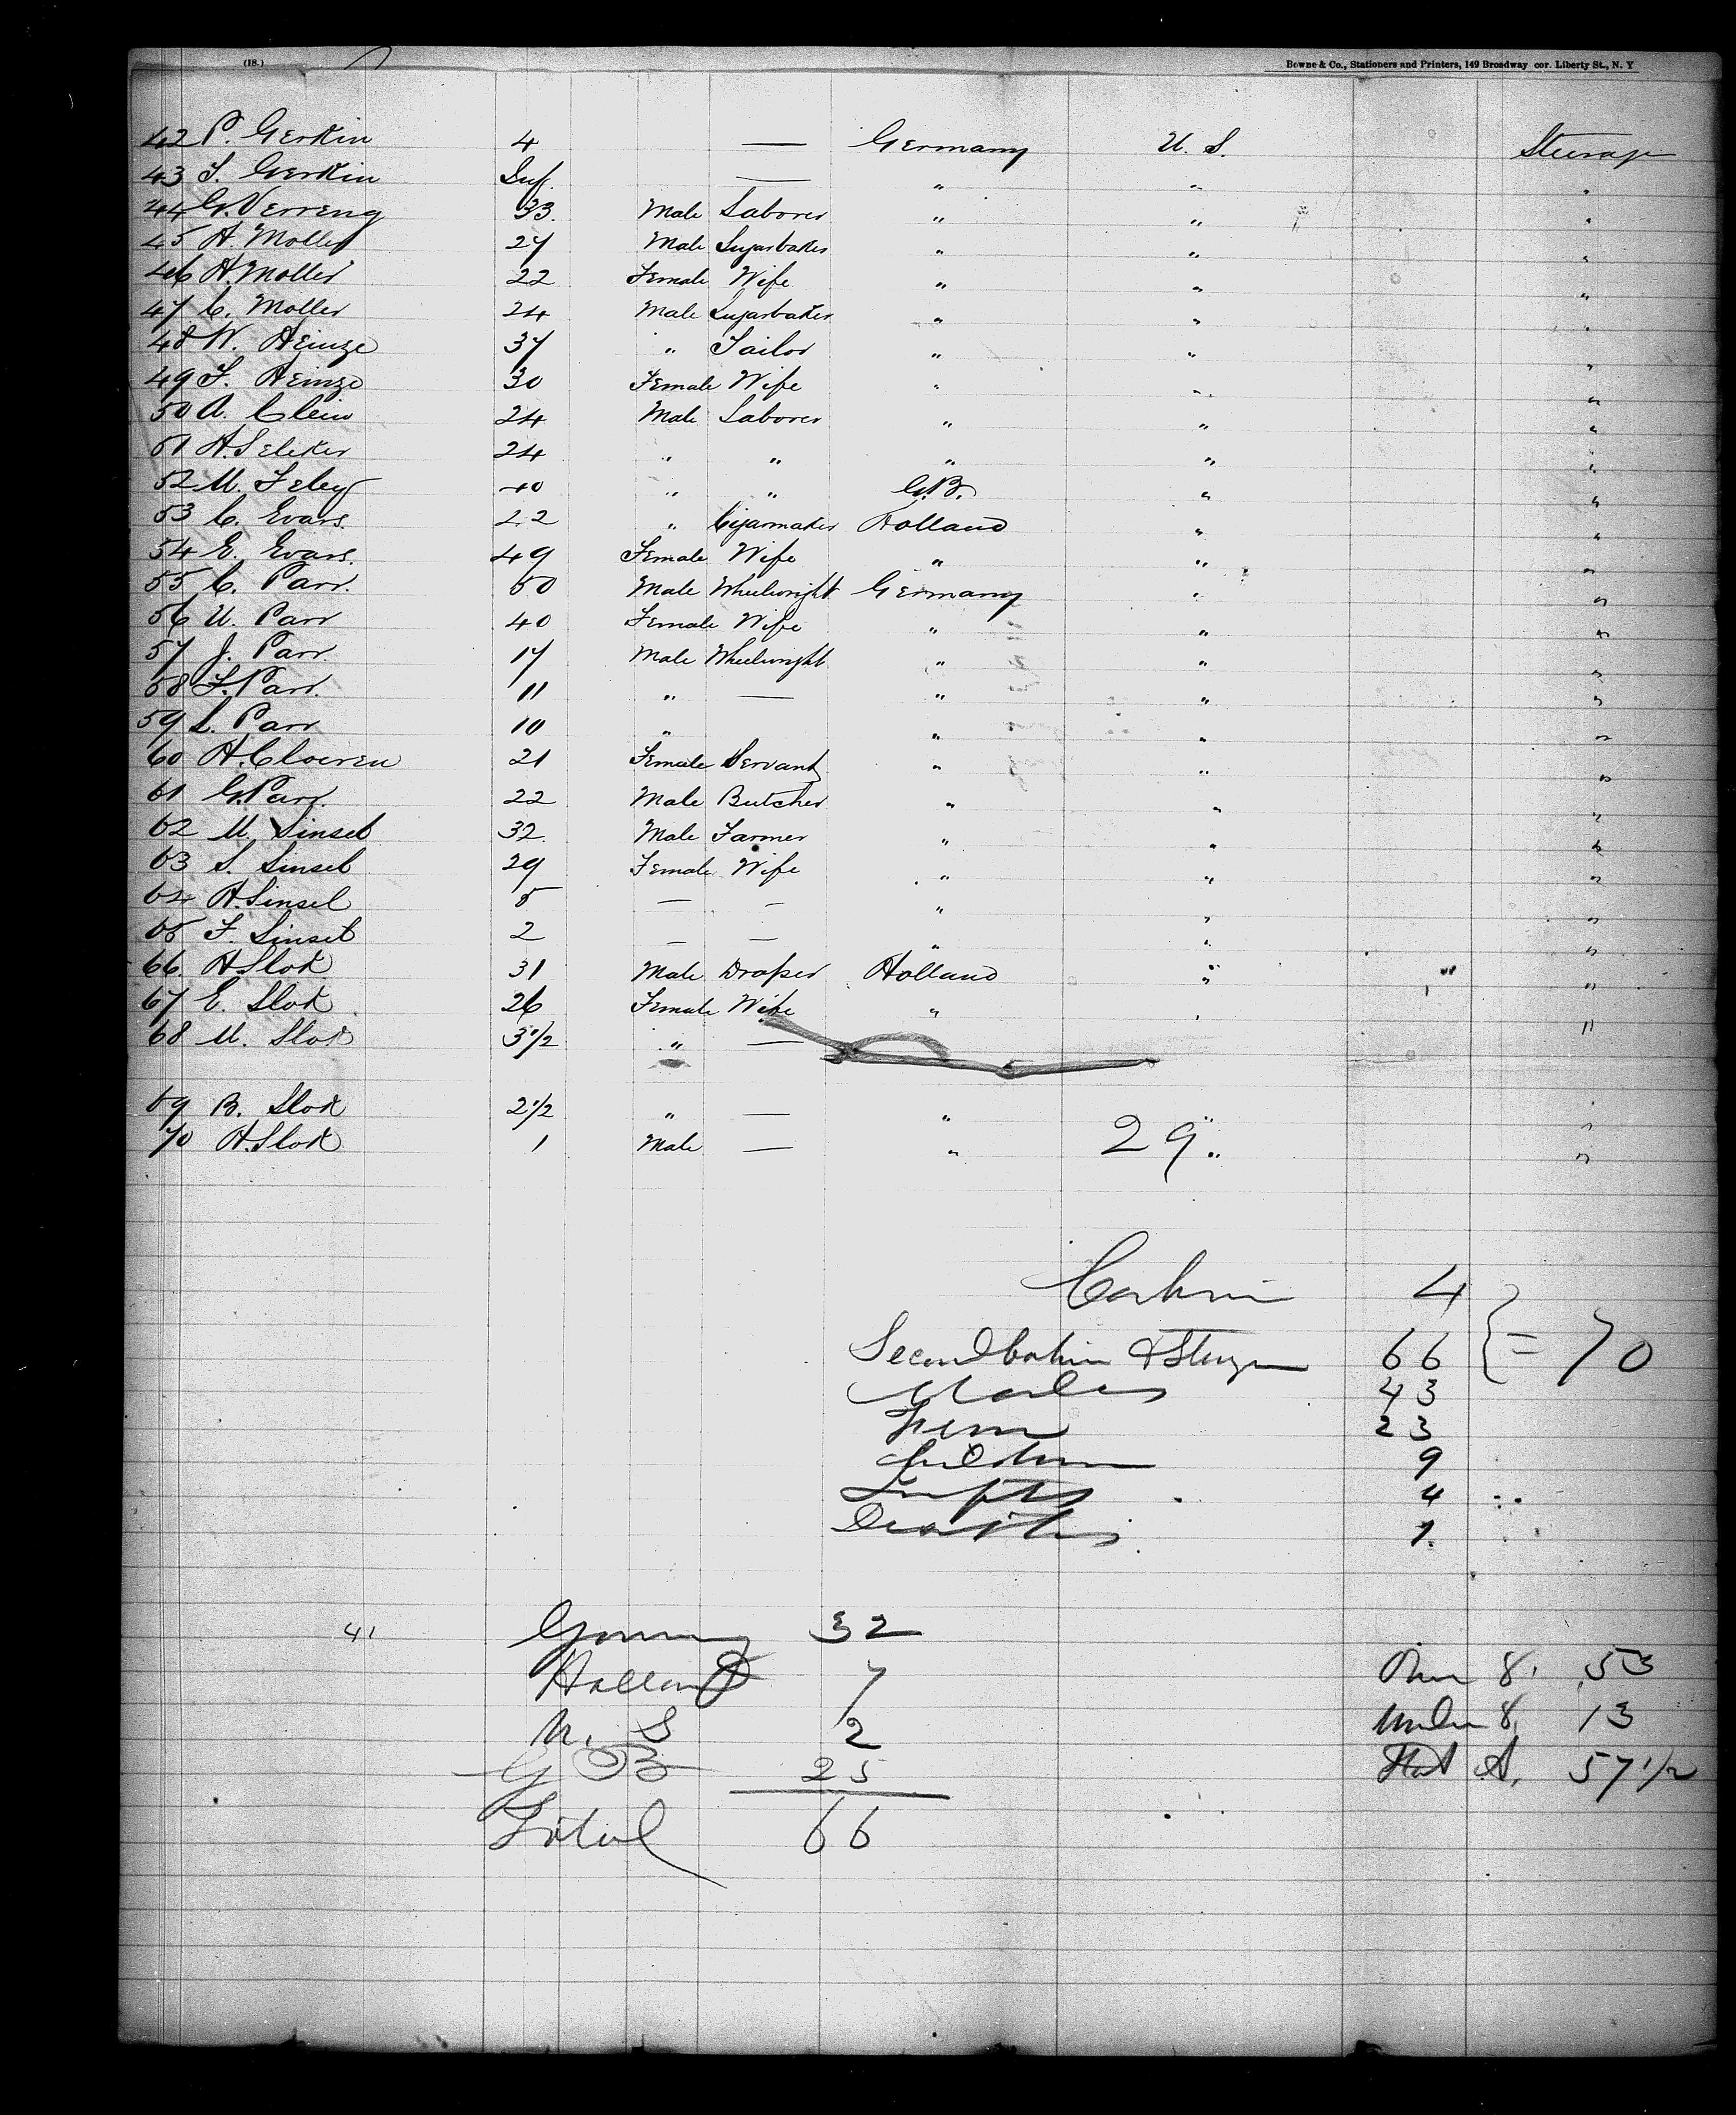 (18.) Bowne & Co., Stationers and Printers, 149 Broadway cor. Liberty St., N. Y
42 P. Gerkin 4 — Germany U. S. Steerage
43 Gerkin Inf. — " " "
44 G. Verreng 33. Male Laborer " " "
45 A. Moller 27 Male Sugarbaker " " "
46 A. Moller 22 Female Wife " " "
47 C. Moller 24 Male Sugarbaker " " "
48 W. Heinze 37 " Tailor " " "
49 Heinze 30 Female Wife " " "
50 A. Clein 24 Male Laborer " " "
51 24 " " " " "
52 M. 40 " " G.B. " "
53 C. Evars. 22 " Cigarmaker Holland " "
54 E. Evars. 49 Female Wife " " "
55 C. Parr. 50 Male Wheelwright Germany " "
56 U. Parr 40 Female Wife " " "
57 J. Parr. 17 Male Wheelwright " " "
58 Parr. 11 " — " " "
59 L. Parr 10 " " " "
60 21 Female Servant " " "
61 G. Parr. 22 Male Butcher " " "
62 M. Sinsel 32. Male Farmer " " "
63 S. Sinsel 29 Female Wife " " "
64 A. Sinsel 5 — — " " "
65 F. Sinsel 2 — — " " "
66. A. Slok 31 Male Draper Holland " " "
67 E. Slok 26 Female Wife " " "
68 M. Slok 3 1/2 " — "
69 B. Slok 2 1/2 " — " " "
70 A. Slok 1 Male — " 29 " "
Cabin 4
Second Cabin & Steerage 66 } = 70
Males 43
Fem 23
Children 9
Infts 4
Deaths 1.
41 Germany 32
Holland 7 Over 8. 53
U. S 2 Under 8, 13
G B 25 Stat A. 57 1/2
Total 66